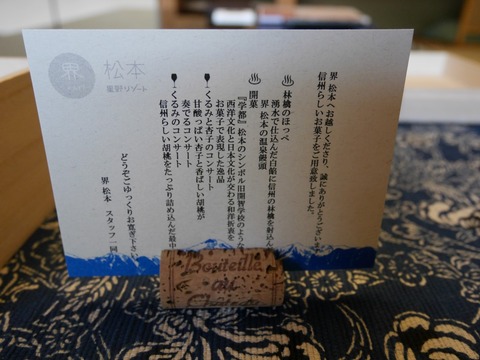 界 松本
星野リゾート
界 松本へお越しくださり、誠にありがとうござい
信州らしいお菓子をご用意致しました。
林檎のほっぺ
湧水で仕込んだ白餡に信州の林檎を射込ん
界 松本の温泉饅頭
開菓
『学都』松本のシンボル旧開智学校のような
西洋文化と日本文化が交わる和洋折衷を
お菓子で表現した逸品
くるみと杏子のコンサート
甘酸っぱい杏子と香ばしい胡桃が
奏でるコンサート
くるみのコンサート
信州らしい胡桃をたっぷり詰め込んだ最中
どうぞごゆっくりお寛ぎ下さい
界 松本 スタッフ一同
Bouteille
au